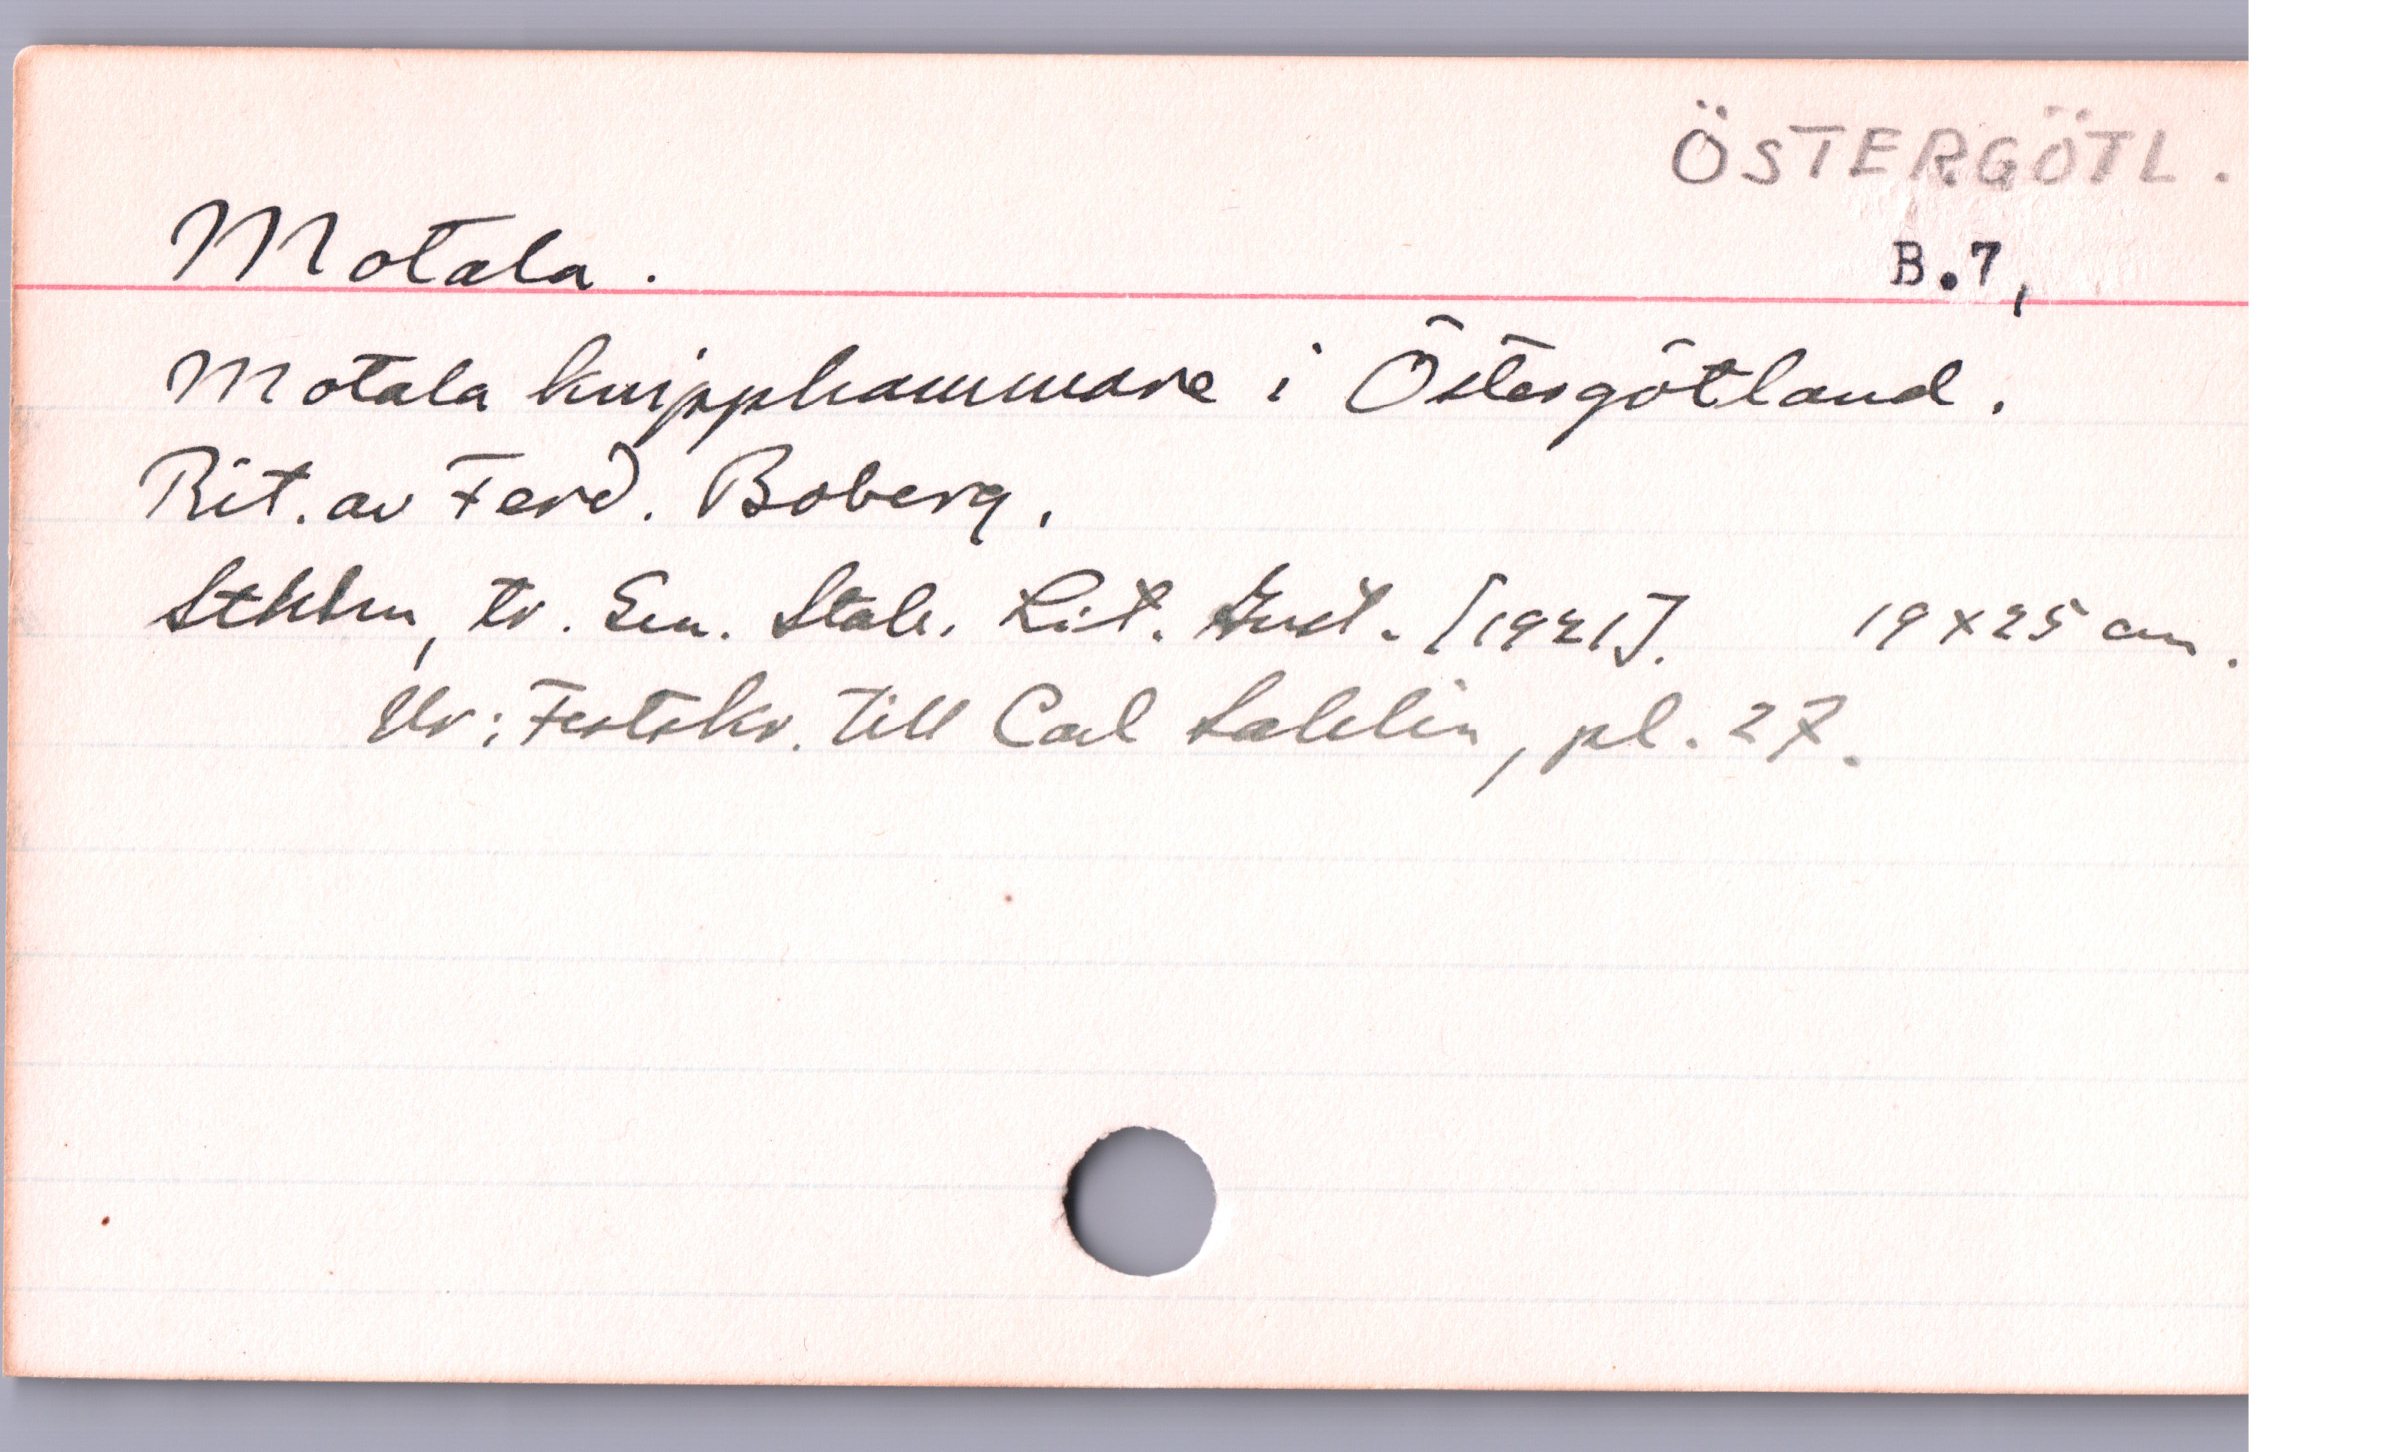 ÖSTERGÖTL.
Motala.
B.7,
Motala knipphammare i Östergötland.
Rit. av Ferd. Boberg.
Sthlm, tr. Gen. Stab. Lit. Inst. [1921]. 19 x 25 cm.
Ur: Festskr. till Carl Sahlin, pl. 27.